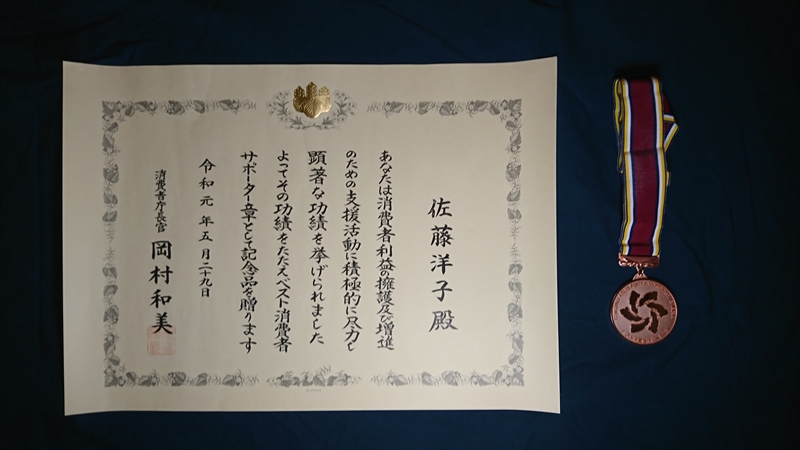 佐藤洋子殿
あなたは消費者利益の擁護及び増進
のための支援活動に積極的に尽力し
顕著な功績を挙げられました
よってその功績をたたえベスト消費者
サポーター章として記念品を贈ります
令和元年五月二十九日
消費者庁長官 岡村和美